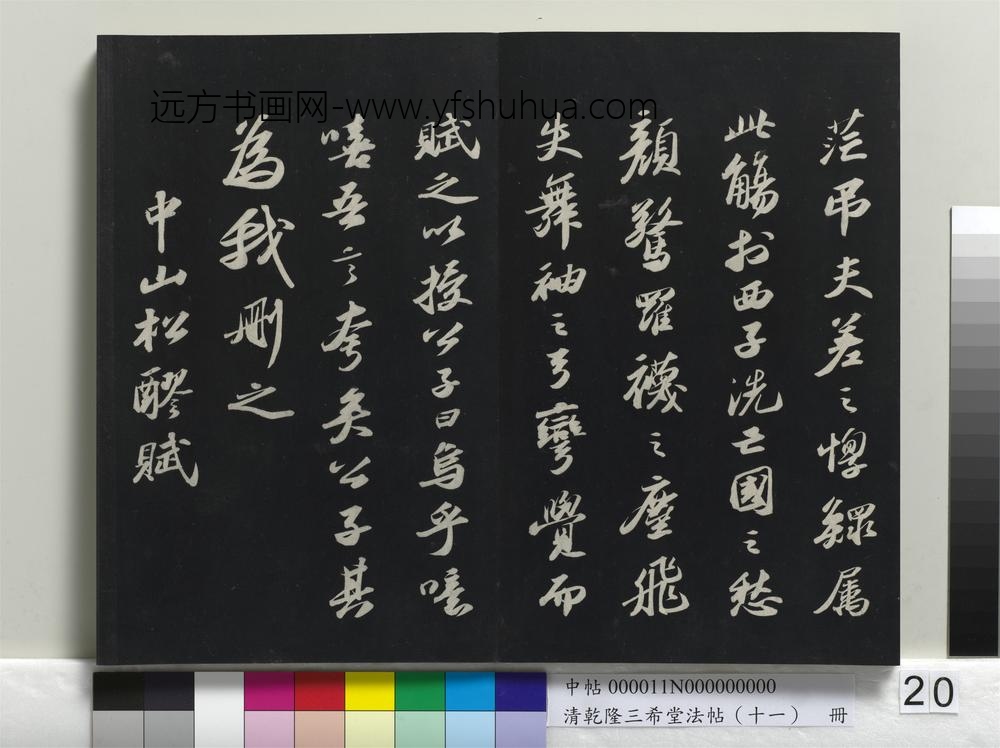 远方书画网-www.yfshuhua.com
茫吊夫差之惸鳏属
此觴扵西子洗亡國之愁
顔驚羅襪之塵飛
失舞袖之弓彎覺而
賦之以授公子曰烏乎噫
嘻吾言夸矣公子其
為我刪之
中山松醪賦
中帖 000011N000000000
清乾隆三希堂法帖（十一） 冊
20